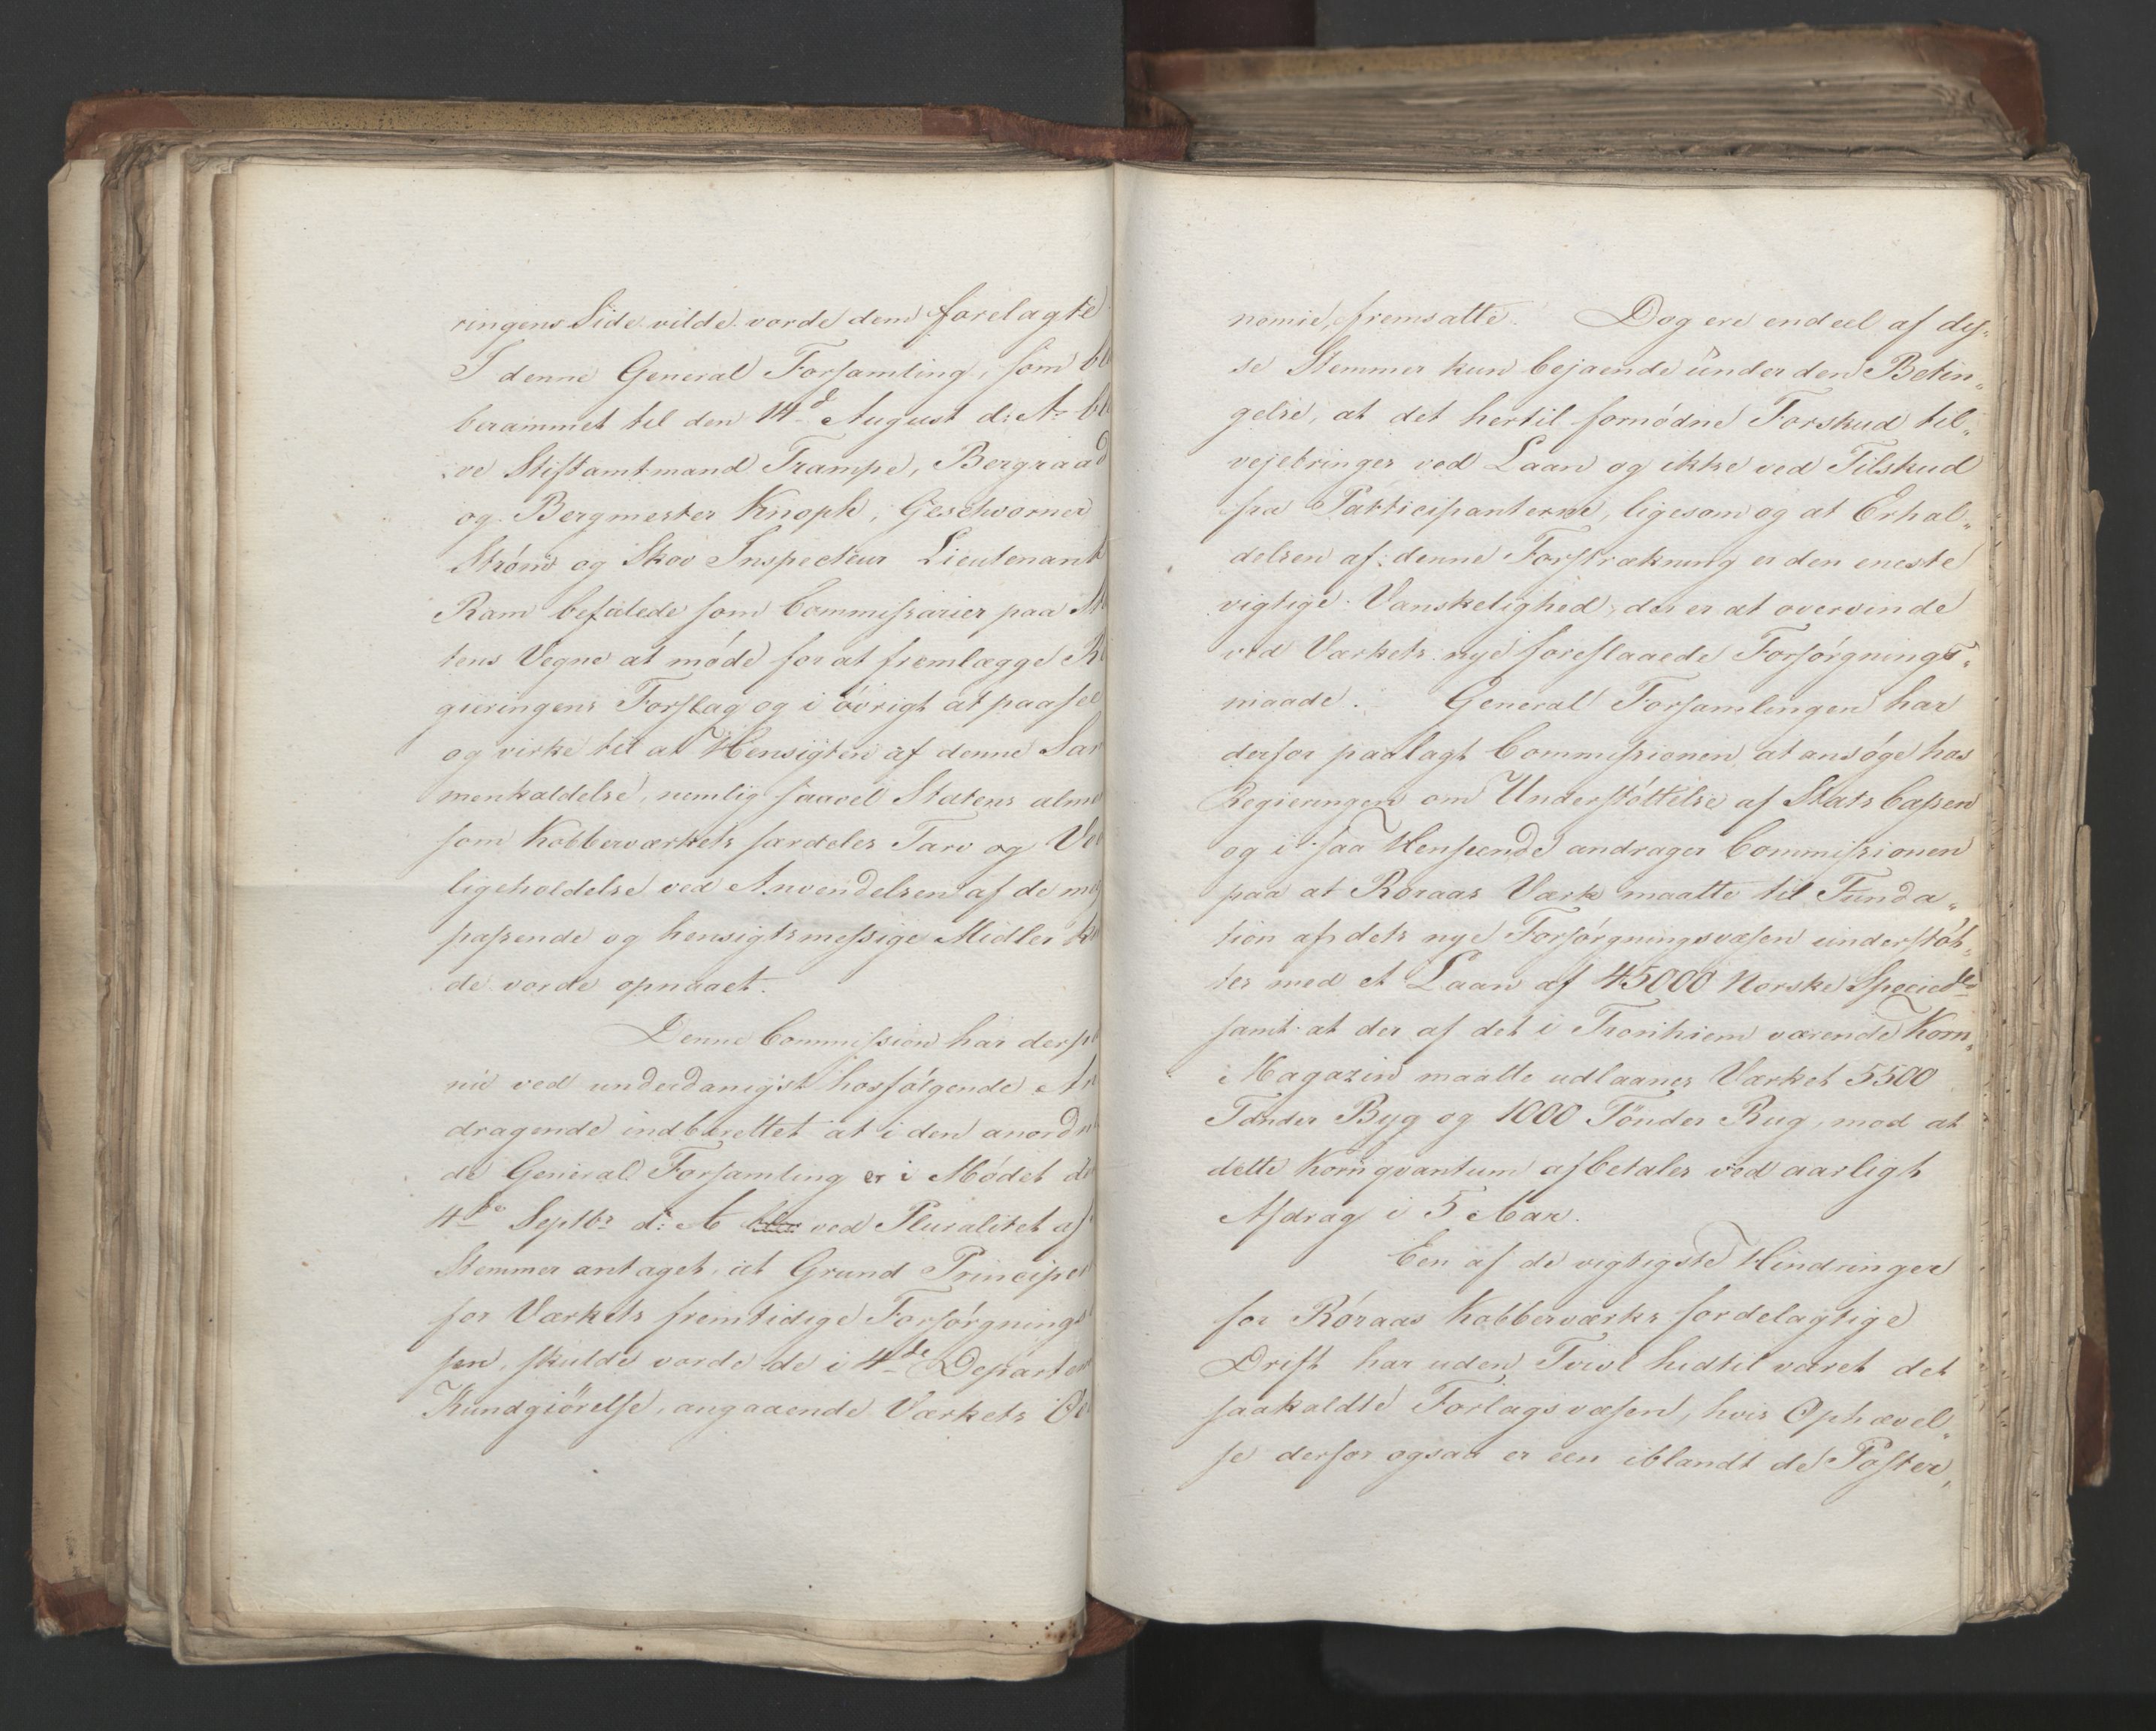 ringens Side vilde vorde dem forelagte
I denne General Forsamling, som bl
berammet til den 14d August d: A: bl
ve Stiftamtmand Trampe, Bergraad
og Bergmester Knoph, Geschworner
Strøm og Skov Inspecteur Lieutenant
Ram befalede som Commissarier paa St
tens Vegne at møde for at fremlægge Re
gieringens Forslag og i øvrigt at paasee
og virke til at Hensigten af denne Sam
menkaldelse, nemlig saavel Statens alm
som Kobberværkets særdeles Tarv og Ve
ligeholdelse ved Anvendelsen af de m
passende og hensigtsmessige Midler k
de vorde opnaaet.
Denne Commission har derp
nu ved underdanigst hosfølgende An
dragende indberettet at i den anordn
de General Forsamling er i Mødet d
4de Septbr d: A blev ved Pluralitet af
Stemmer antaget, at Grund Principer
for Værkets fremtidige Forsørgnings
sen, skulde vorde de i 4de Departe
Kundgiørelse, angaaende Værkets Oe
nomie, fremsatte. Dog ere endeel af dis„
se Stemmer kun bejaende under den Betin„
gelse, at det hertil fornødne Forskud til„
vejebringes ved Laan og ikke ved Tilskud
fra Participanterne, ligesom og at Erhol„
delsen af denne Forstrækning er den eneste
vigtige Vanskelighed, der er at overvinde
ved Værkets nye foreslaaede Forsørgnings„
maade. General Forsamlingen har
derfor paalagt Commissionen, at ansøge hos
Regieringen om Understøttelse af Stats Cassen
og i saa Henseende andrager Commissionen
paa at Røraas Værk maatte til Funda„
tion af dets nye Forsørgningsvæsen understøt„
tes med et Laan af 45000 Norske Speciedlr
samt at der af det i Tronhiem værende Korn„
Magazin maatte udlaanes Værket 5500
Tønder Byg og 1000 Tønder Rug, mod at
dette Kornqvantum afbetales ved aarligt
Afdrag i 5 Aar.
Een af de vigtigste Hindringer
for Røraas Kobberværks fordelagtige
Drift har uden Tvivl hidtil været det
saakaldte Forlagsvæsen, hvis Ophævel„
se derfor ogsaa er een iblandt de Poster,